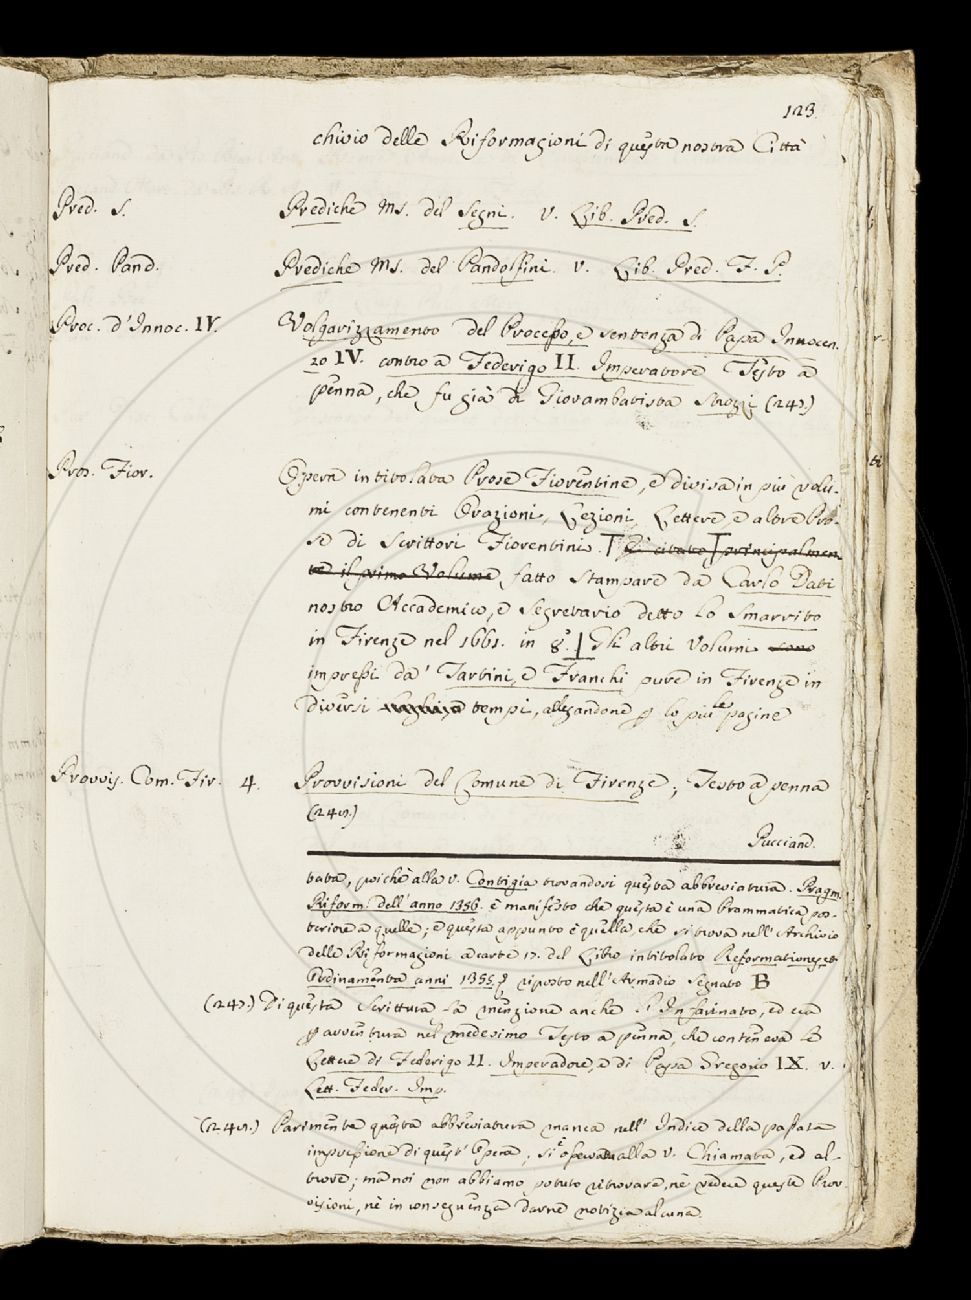 123.
chivio delle Riformagioni di questa nostra Città
Pred. S. Prediche Ms. del Segni. v. Lib. Pred. S.
Pred. Pand. Prediche Ms. del Pandolfini. v. Lib. Pred. F. P.
Proc. d'Innoc. IV. Volgarizzamento del Processo, e sentenza di Papa Innocen-
zo IV. contro a Federigo II. Imperatore Testo a
penna, che fu già di Giovambatista Strozzi (243.)
Pros. Fior. Opera intitolata Prose Fiorentine, e divisa in più volu-
mi contenenti Orazioni, Lezioni, Lettere, e altre Pro-
se di Scrittori Fiorentini. È citato principalmen-
te il primo Volume, fatto stampare da Carlo Dati
nostro Accademico, e Segretario detto lo Smarrito
in Firenze nel 1661. in 8°. Gli altri Volumi sono
impressi da' Tartini, e Franchi pure in Firenze in
diversi tempi, allegandone lo più le pagine
Provvis. Com. Fir. 4. Provvisioni del Comune di Firenze; Testo a penna
(244.)
Pucciand.
tata, poichè alla v. Contigia trovandosi questa abbreviatura. Pragm.
Riform. dell'anno 1356. è manifesto che questa è una Prammatica pos-
teriore a quelle; e questa appunto è quella che si trova nell'Archivio
delle Riformagioni a carte 17. del Libro intitolato Reformationes, et
Ordinamenta anni 1355. riposto nell'Armadio Segnato B
(243.) Di questa Scrittura fa menzione anche l'Infarinato, ed era
per avventura nel medesimo Testo a penna, che conteneva le
Lettere di Federigo II. Imperadore, e di Papa Gregorio IX. v.
Lett. Feder. Imp.
(244.) Parimente questa abbreviatura manca nell'Indice della passata
impressione di quest'Opera, si osserva alla v. Chiamata, ed al-
trove; ma noi non abbiamo potuto ritrovare, nè vedere queste Prov-
visioni, nè in conseguenza darne notizia alcuna.